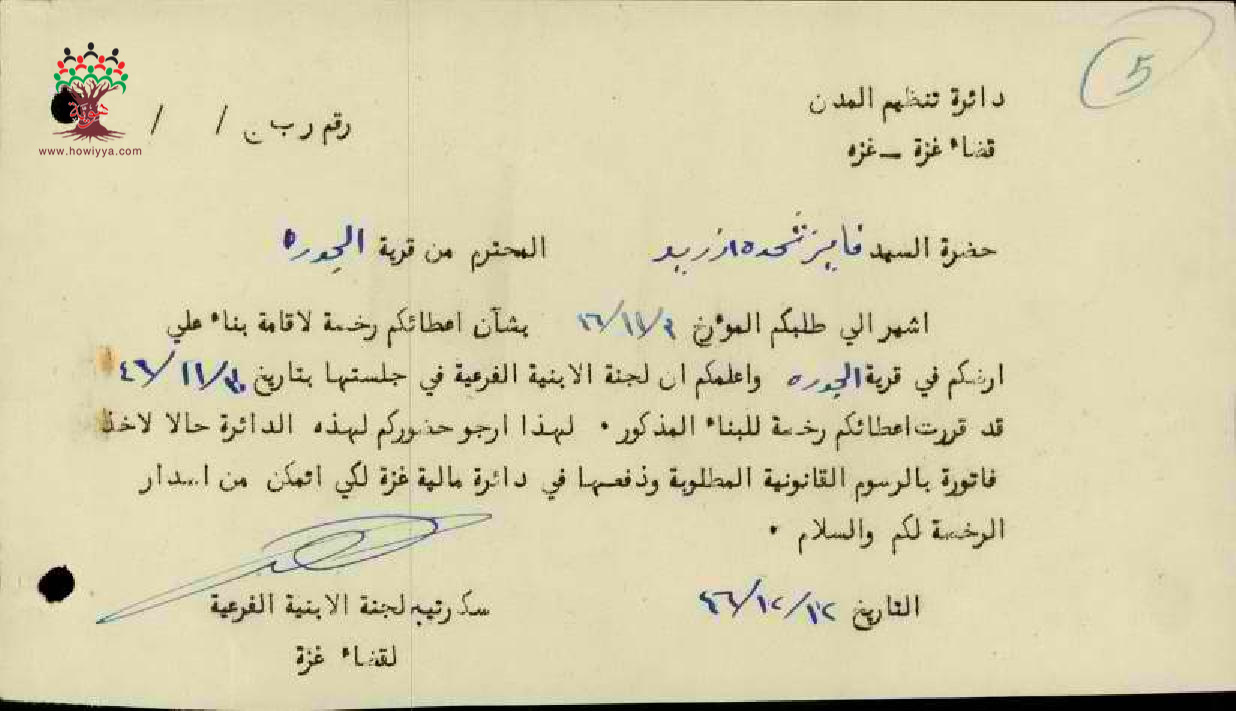 5
دائرة تنظيم المدن
رقم ر ب ج / /
قضاء غزة ــ غزه
هوية
www.howiyya.com
حضرة السيد فايز شحده المحترم من قرية الجوره
اشير الي طلبكم المؤرخ بشأن اعطائكم رخصة لاقامة بناء علي
ارضكم في قرية الجوره واعلمكم ان لجنة الابنية الفرعية في جلستها بتاريخ ٣٠/١١/٤٦
قد قررت اعطائكم رخصة للبناء المذكور ٠ لهذا ارجو حضوركم لهذه الدائرة حالا لاخذ
فاتورة بالرسوم القانونية المطلوبة ودفعها في دائرة مالية غزة لكي اتمكن من اصدار
الرخصة لكم والسلام ٠
التاريخ ١٢/١٢/٤٦
سكرتير لجنة الابنية الفرعية
لقضاء غزة